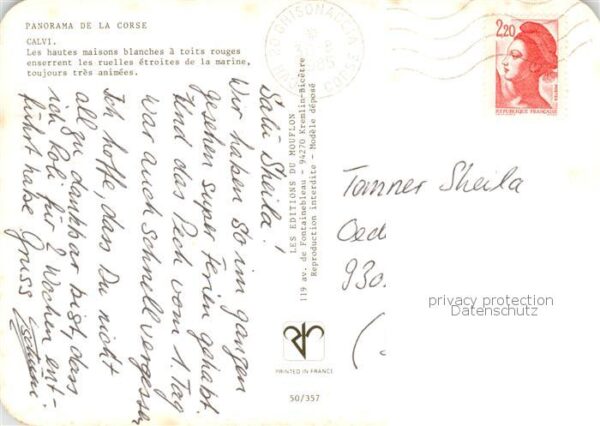 PANORAMA DE LA CORSE
CALVI.
Les hautes maisons blanches à toits rouges
enserrent les ruelles étroites de la marine,
toujours très animées.
Salü Sheila!
Wir haben so im ganzen
gesehen super Ferien gehabt.
Und das Pech vom 1. Tag
war auch schnell vergessen
Ich hoffe, dass Du nicht
all zu dankbar bist, dass
ich Roli für 2 Wochen ent-
führt habe. Gruss
LES EDITIONS DU MOUFLON
119 av. de Fontainebleau - 94270 Kremlin-Bicêtre
Reproduction interdite - Modèle déposé
PRINTED IN FRANCE
50/357
GHISONACCIA
CORSE
2,20
REPUBLIQUE FRANÇAISE
Tanner Sheila
Oed
930
privacy protection
Datenschutz